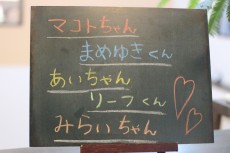 マコトちゃん
まめゆきくん
あいちゃん
リーフくん
みらいちゃん